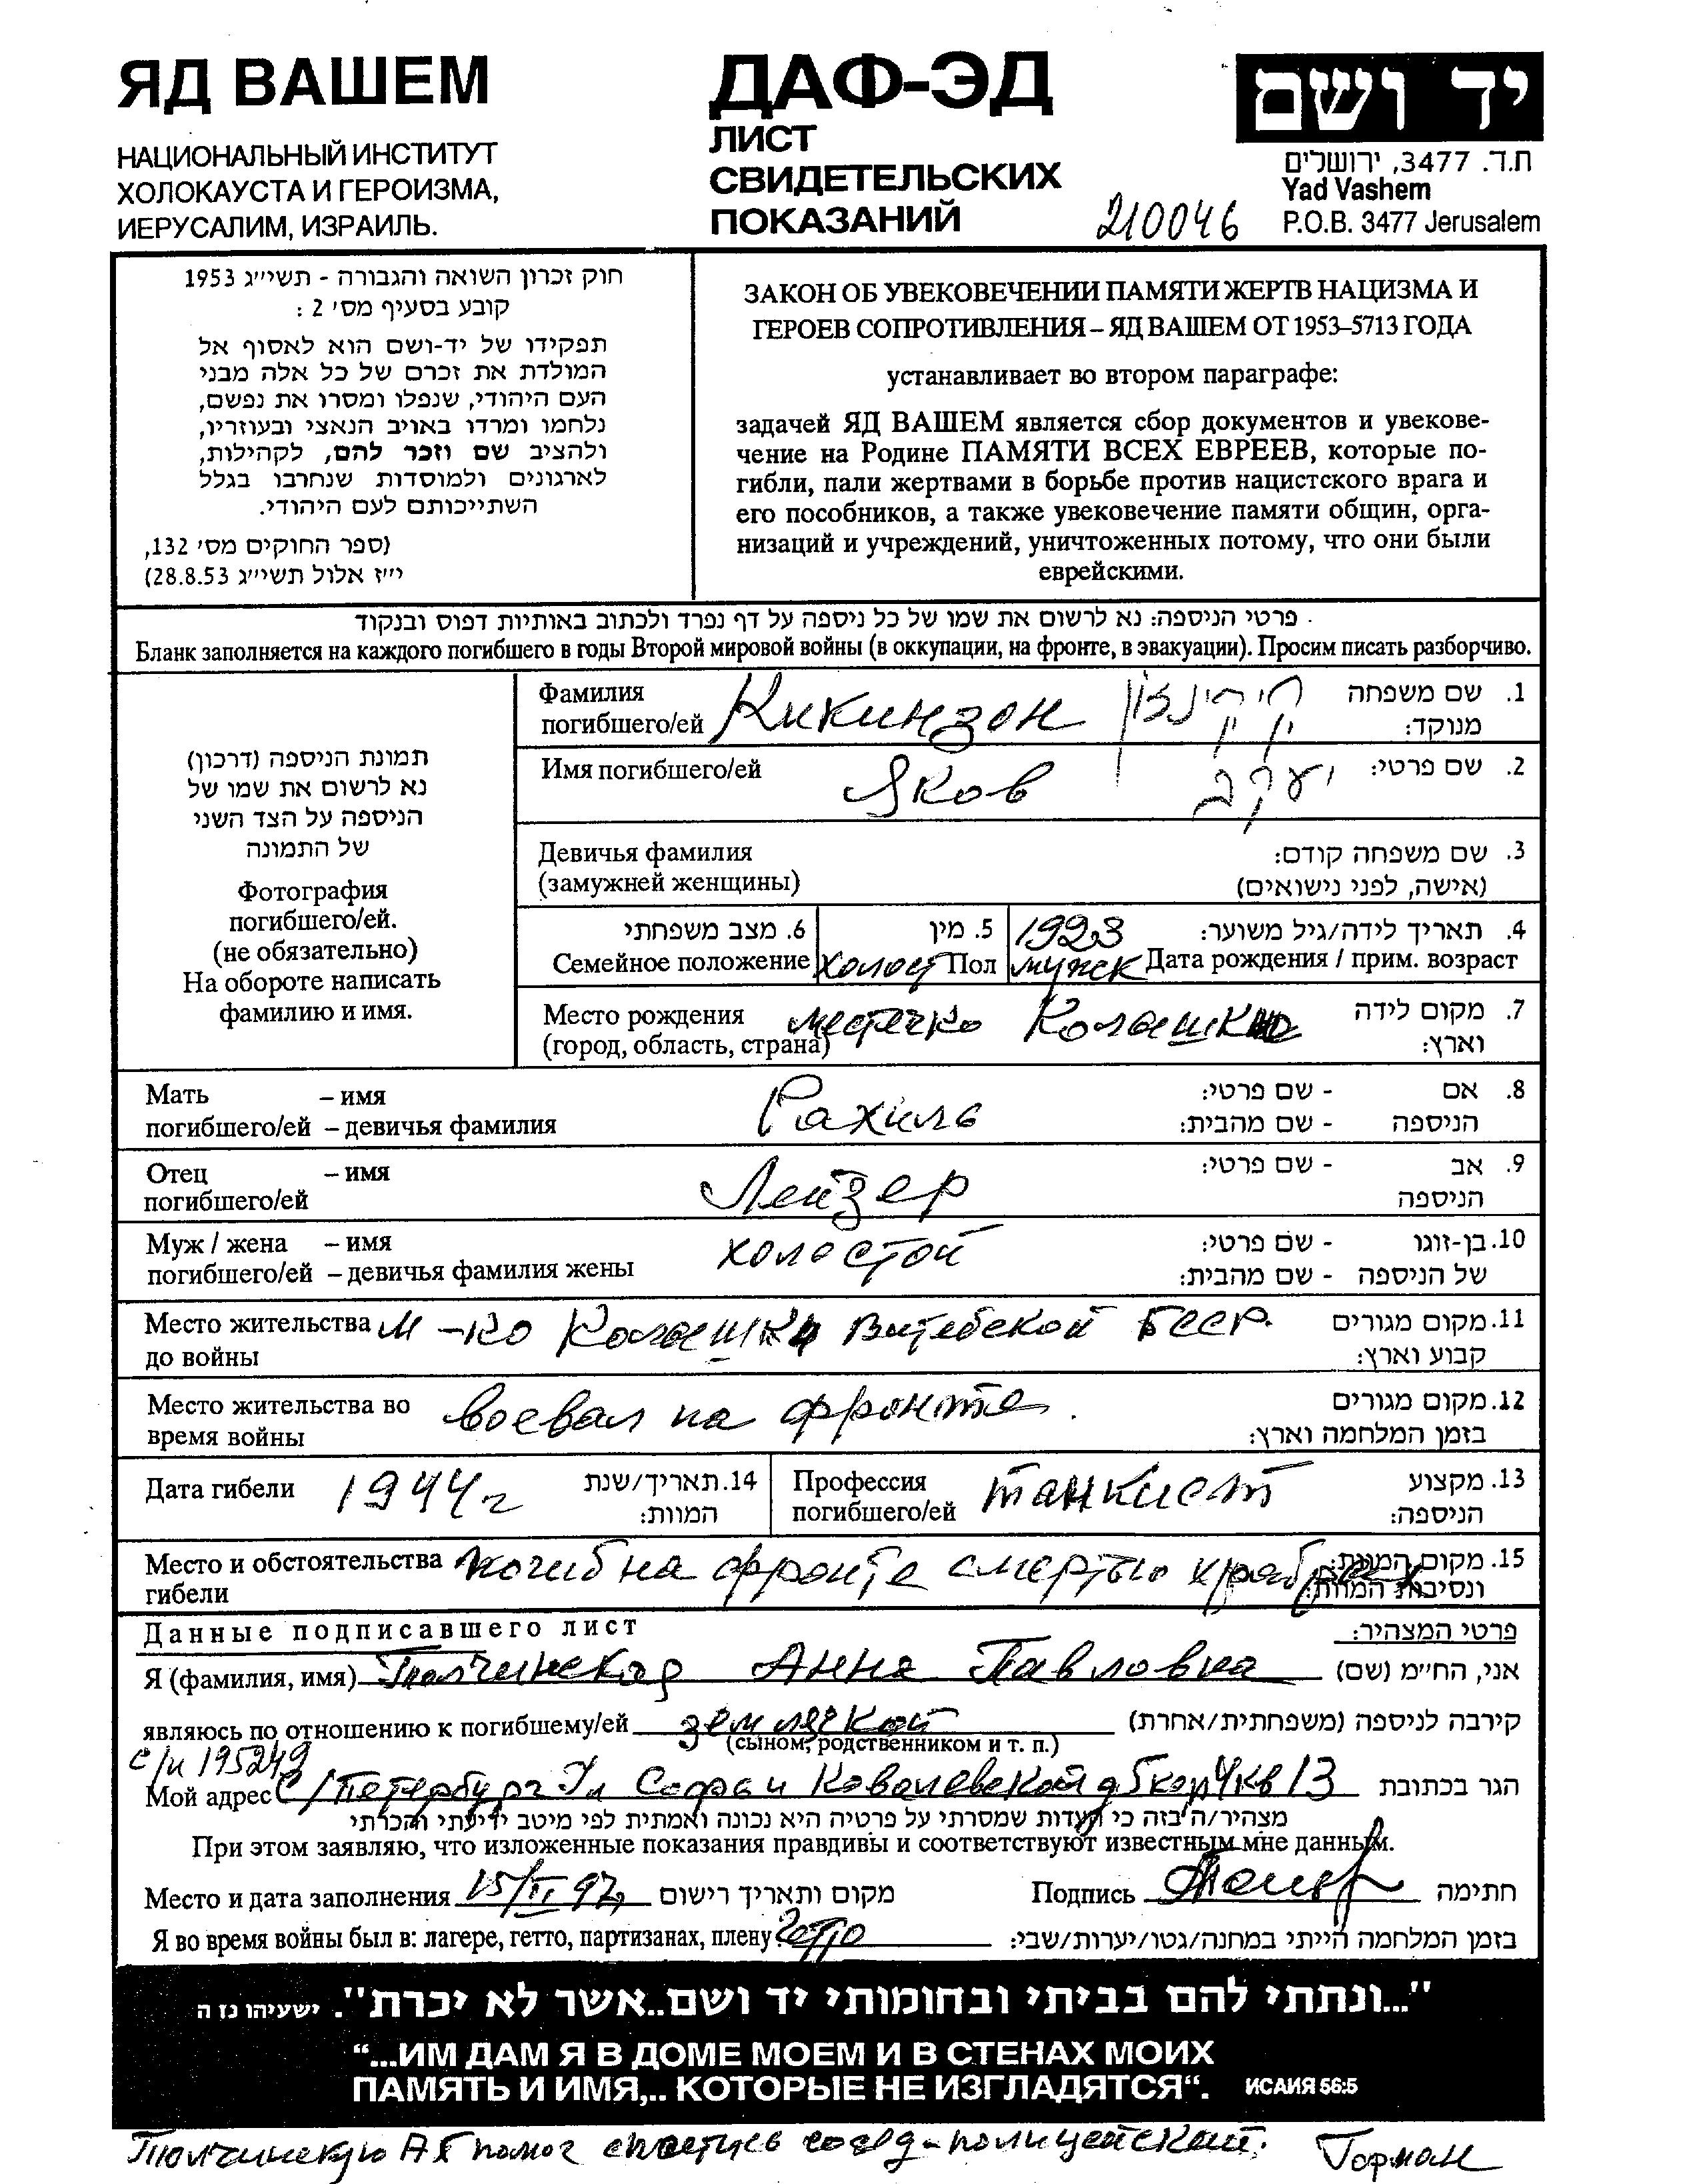 ЯД ВАШЕМ
НАЦИОНАЛЬНЫЙ ИНСТИТУТ
ХОЛОКАУСТА И ГЕРОИЗМА,
ИЕРУСАЛИМ, ИЗРАИЛЬ.
ДАФ-ЭД
ЛИСТ
СВИДЕТЕЛЬСКИХ
ПОКАЗАНИЙ
210046
יד ושם
ת.ד. 3477, ירושלים
Yad Vashem
P.O.B. 3477 Jerusalem
חוק זכרון השואה והגבורה - תשי״ג 1953
קובע בסעיף מס׳ 2 :
תפקידו של יד-ושם הוא לאסוף אל
המולדת את זכרם של כל אלה מבני
העם היהודי, שנפלו ומסרו את נפשם,
נלחמו ומרדו באויב הנאצי ובעוזריו,
ולהציב שם וזכר להם, לקהילות,
לארגונים ולמוסדות שנחרבו בגלל
השתייכותם לעם היהודי.
(ספר החוקים מס׳ 132,
י״ז אלול תשי״ג 28.8.53)
ЗАКОН ОБ УВЕКОВЕЧЕНИИ ПАМЯТИ ЖЕРТВ НАЦИЗМА И
ГЕРОЕВ СОПРОТИВЛЕНИЯ – ЯД ВАШЕМ ОТ 1953–5713 ГОДА
устанавливает во втором параграфе:
задачей ЯД ВАШЕМ является сбор документов и увекове-
чение на Родине ПАМЯТИ ВСЕХ ЕВРЕЕВ, которые по-
гибли, пали жертвами в борьбе против нацистского врага и
его пособников, а также увековечение памяти общин, орга-
низаций и учреждений, уничтоженных потому, что они были
еврейскими.
פרטי הניספה: נא לרשום את שמו של כל ניספה על דף נפרד ולכתוב באותיות דפוס ובנקוד
Бланк заполняется на каждого погибшего в годы Второй мировой войны (в оккупации, на фронте, в эвакуации). Просим писать разборчиво.
תמונת הניספה (דרכון)
נא לרשום את שמו של
הניספה על הצד השני
של התמונה
Фотография
погибшего/ей.
(не обязательно)
На обороте написать
фамилию и имя.
Фамилия
погибшего/ей Кикинзон קיקינזון
1. שם משפחה
מנוקד:
Имя погибшего/ей Яков יעקב 2. שם פרטי:
Девичья фамилия
(замужней женщины)
3. שם משפחה קודם:
(אישה, לפני נישואים)
6. מצב משפחתי
Семейное положение холост
5. מין
Пол мужск
1923 4. תאריך לידה/גיל משוער:
Дата рождения / прим. возраст
Место рождения местечко
(город, область, страна)
7. מקום לידה
וארץ:
Мать – имя Рахиль 8. אם - שם פרטי:
погибшего/ей – девичья фамилия הניספה - שם מהבית:
Отец – имя Лейзер 9. אב - שם פרטי:
погибшего/ей הניספה
Муж / жена – имя холостой 10. בן-זוגו - שם פרטי:
погибшего/ей – девичья фамилия жены של הניספה - שם מהבית:
Место жительства м-ко Колышки Витебской БССР. 11. מקום מגורים
до войны קבוע וארץ:
Место жительства во воевал на фронте. 12. מקום מגורים
время войны בזמן המלחמה וארץ:
Дата гибели 1944г 14. תאריך/שנת
המוות:
Профессия танкист 13. מקצוע
погибшего/ей הניספה:
Место и обстоятельства погиб на фронте смертью храбрых 15. מקום המוות:
гибели ונסיבות המוות:
Данные подписавшего лист פרטי המצהיר:
Я (фамилия, имя) Толчинская Анна Павловна אני, החי״מ (שם)
являюсь по отношению к погибшему/ей землячкой קירבה לניספה (משפחתית/אחרת)
(сыном, родственником и т. п.)
с/п 195249
Мой адрес С/Петербург Ул Софьи Ковалевской д 5 кор 4 кв 13 הגר בכתובת
מצהיר/ה בזה כי העדות שמסרתי על פרטיה היא נכונה ואמתית לפי מיטב ידיעתי והכרתי
При этом заявляю, что изложенные показания правдивы и соответствуют известным мне данным.
Место и дата заполнения 15/II 97 מקום ותאריך רישום Подпись חתימה
Я во время войны был в: лагере, гетто, партизанах, плену гетто בזמן המלחמה הייתי במחנה/גטו/יערות/שבי:
"...ונתתי להם בביתי ובחומותי יד ושם..אשר לא יכרת". ישעיהו נז ה
“...ИМ ДАМ Я В ДОМЕ МОЕМ И В СТЕНАХ МОИХ
ПАМЯТЬ И ИМЯ,.. КОТОРЫЕ НЕ ИЗГЛАДЯТСЯ“. ИСАИЯ 56:5
Толчинскую А П помог спастись сосед-полицейский. Горман